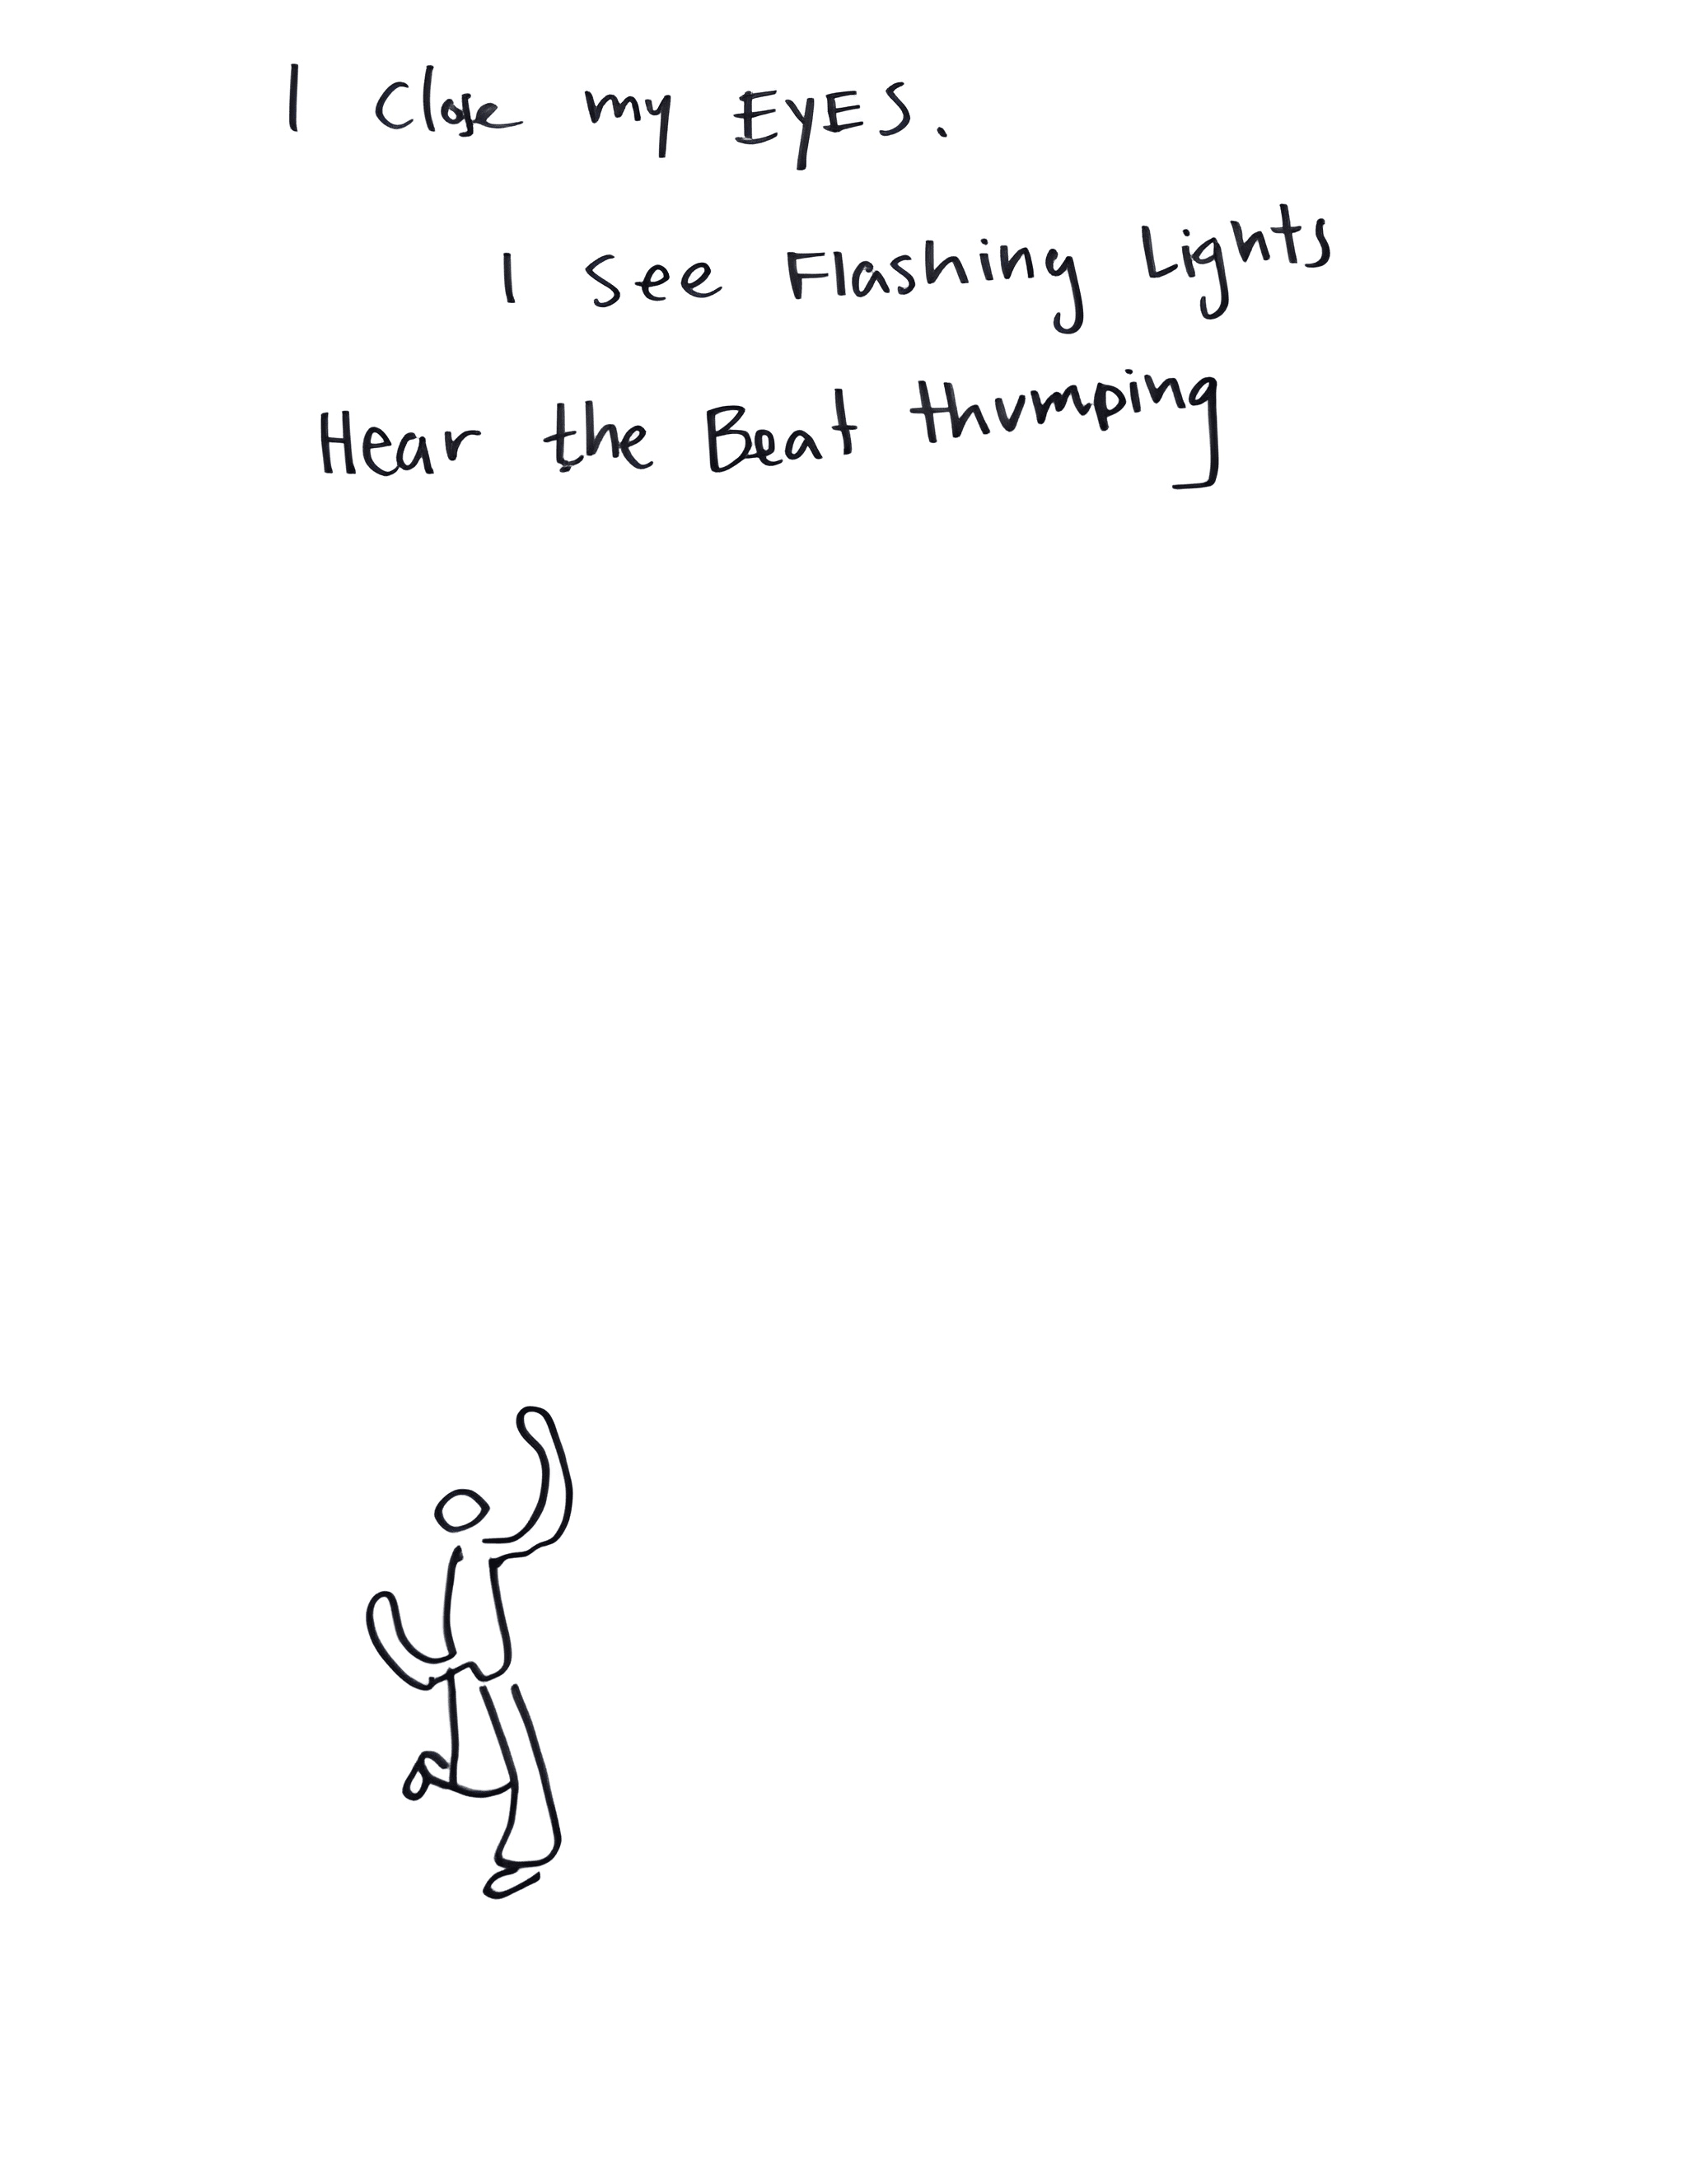 I Close my EyES.
I see Flashing Lights
Hear the Beat thumping